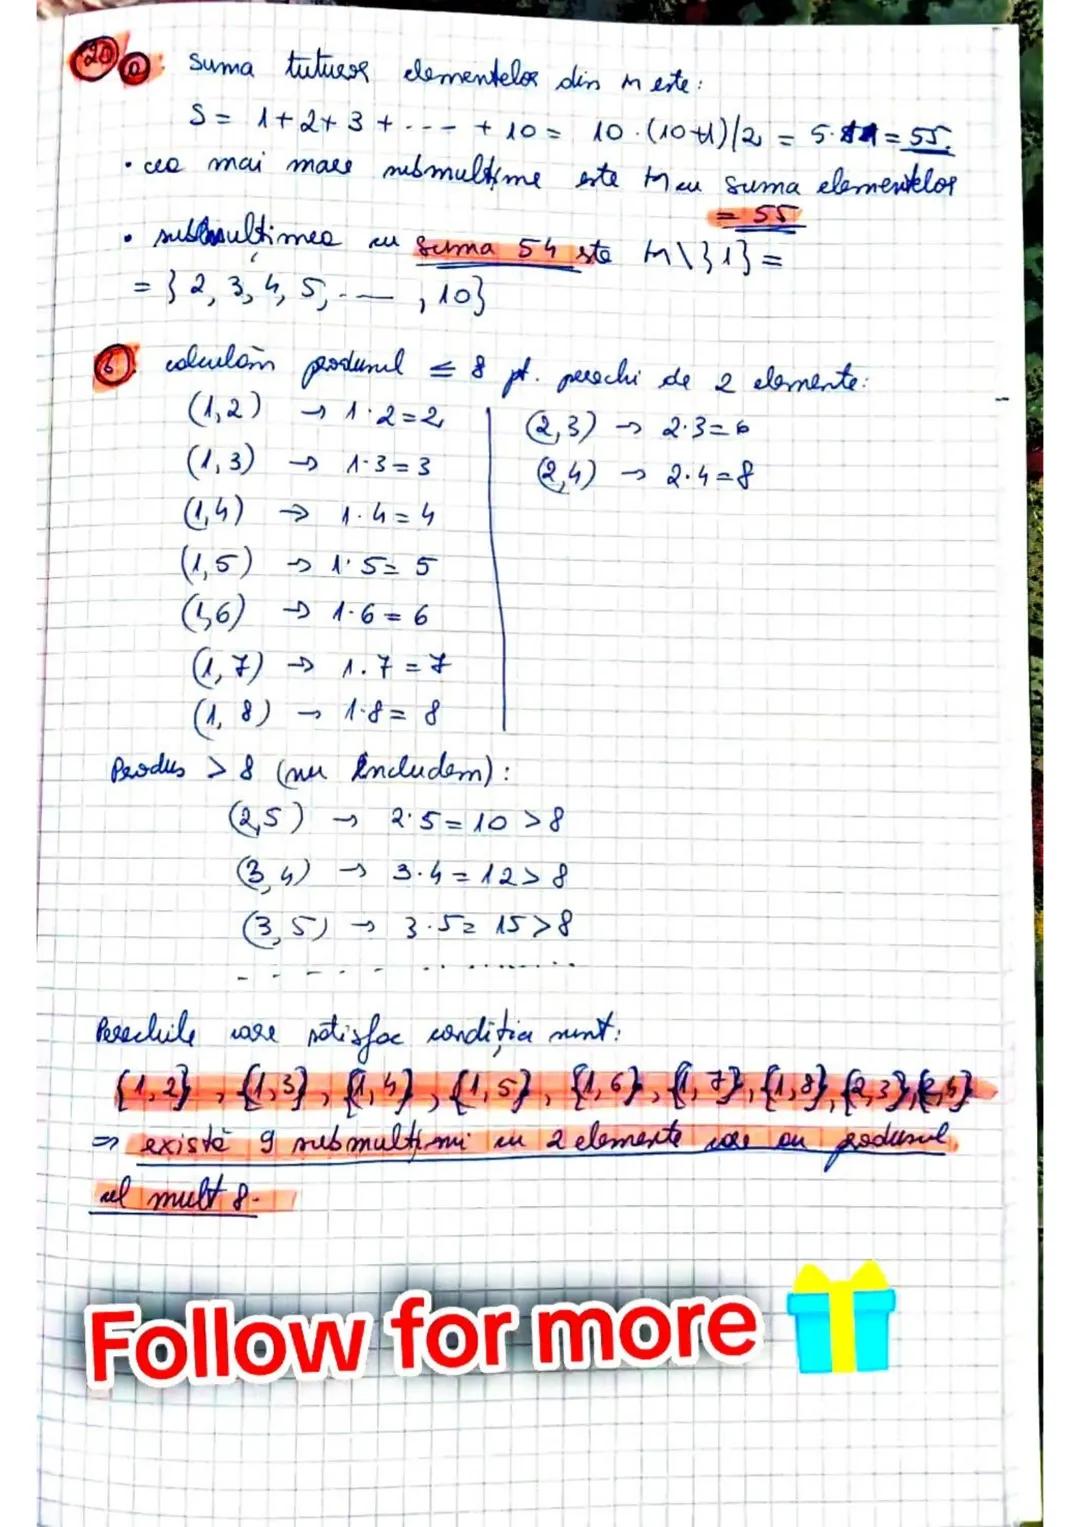 20 a. Suma tuturor elementelor din M este:
S = 1+2+3+...+10 = 10·(10+1)/2 = 5·11 = 55.
• cea mai mare submulțime este M cu suma elementelor
= 55
• submulțimea cu suma 54 este M\{1} =
= {2, 3, 4, 5, ..., 10}
b. calculăm produsul ≤ 8 pt. perechi de 2 elemente:
(1,2) → 1·2=2
(1,3) → 1·3=3
(1,4) → 1·4=4
(1,5) → 1·5=5
(1,6) → 1·6=6
(1,7) → 1·7=7
(1,8) → 1·8=8
(2,3) → 2·3=6
(2,4) → 2·4=8
Produs > 8 (nu includem):
(2,5) → 2·5=10 >8
(3,4) → 3·4=12>8
(3,5) → 3·5=15>8
..............
Perechile care satisfac condiția sunt:
{1,2}, {1,3}, {1,4}, {1,5}, {1,6}, {1,7}, {1,8}, {2,3}, {2,4}
⇒ există 9 submulțimi cu 2 elemente care au produsul
cel mult 8.
Follow for more